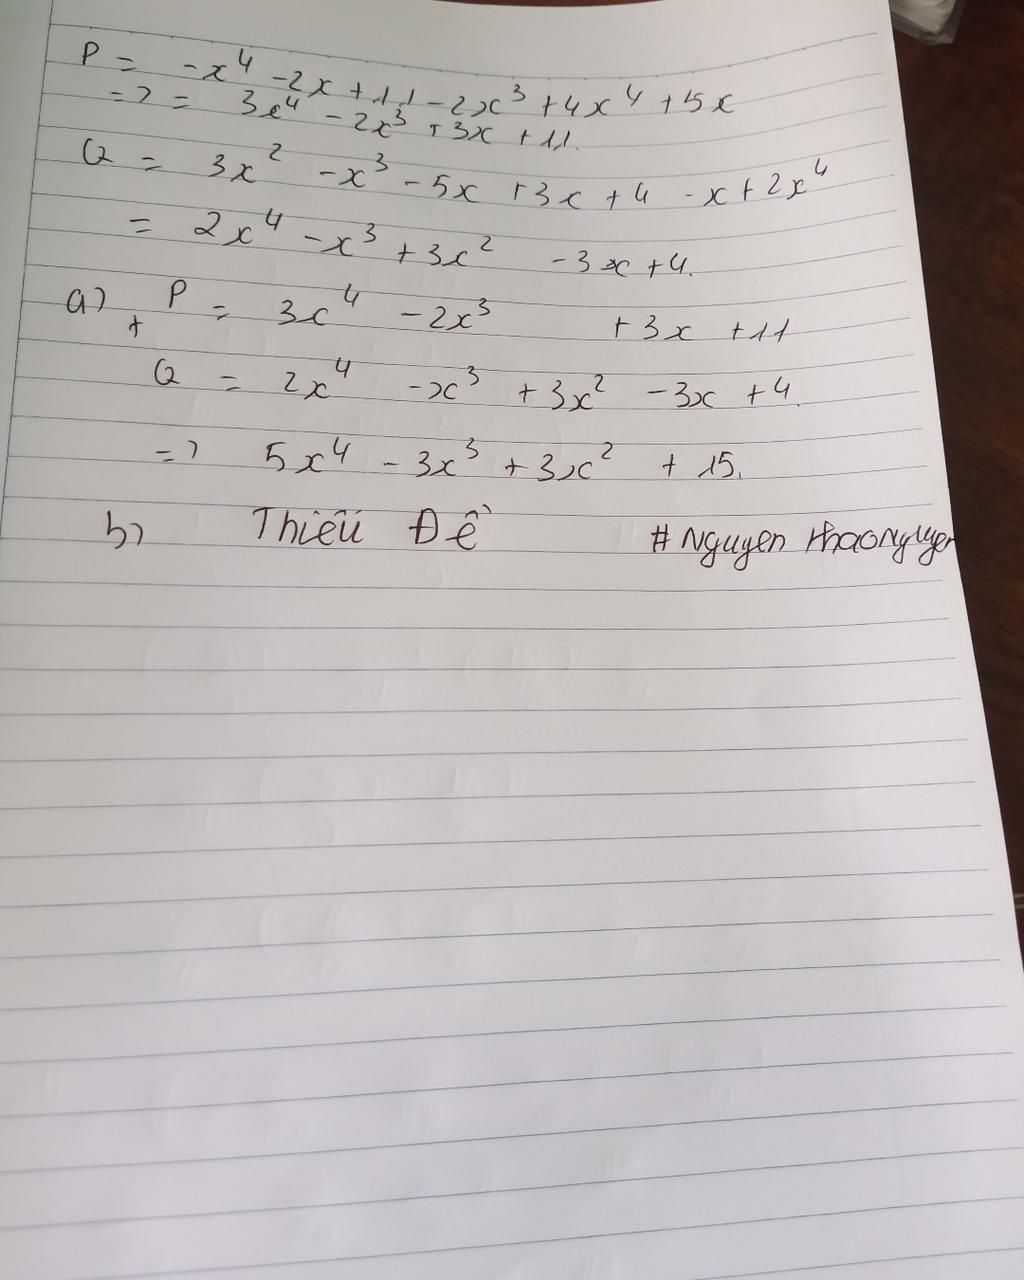 P = -x⁴ -2x +11 -2x³ +4x⁴ +5x
=> = 3x⁴ -2x³ +3x +11.
Q = 3x² -x³ -5x +3x +4 -x +2x⁴
= 2x⁴ -x³ +3x² -3x +4.
a) P = 3x⁴ -2x³ +3x +11
+
Q = 2x⁴ -x³ +3x² -3x +4.
=> 5x⁴ -3x³ +3x² +15.
b) Thiếu Đề # Nguyen